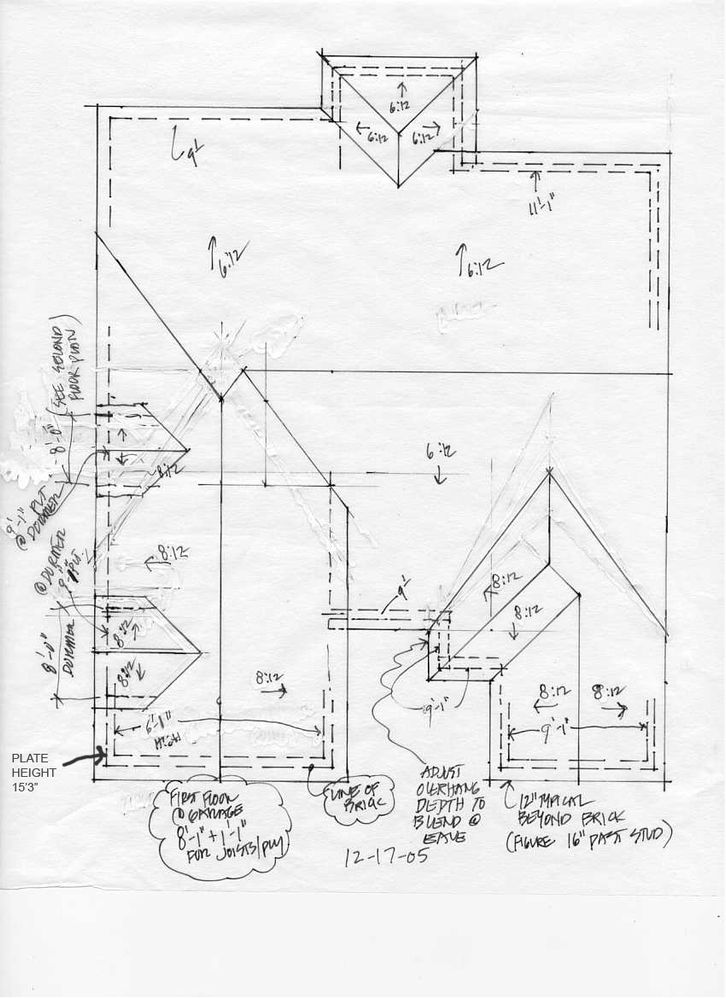 6:12
6:12
6:12
9'
11'-1"
6:12
6:12
8'-0" (SEE SECOND
FLOOR PLAN)
8:12
6:12
9'-1" PLT
@ DORMER
@ DORMER
8:12
9'
8:12
8:12
8:12
8:12
8'-0"
DORMER
8:12
8:12
8:12
9'-1"
9'-1"
6'-1"
HIGH
PLATE
HEIGHT
15'3"
FIRST FLOOR
@ GARAGE
8'-1" + 1'-1"
FOR JOISTS/PLY
LINE OF
BRICK
ADJUST
OVERHANG
DEPTH TO
BLEND @
EAVE
12" TYPICAL
BEYOND BRICK
(FIGURE 16" PAST STUD)
12-17-05